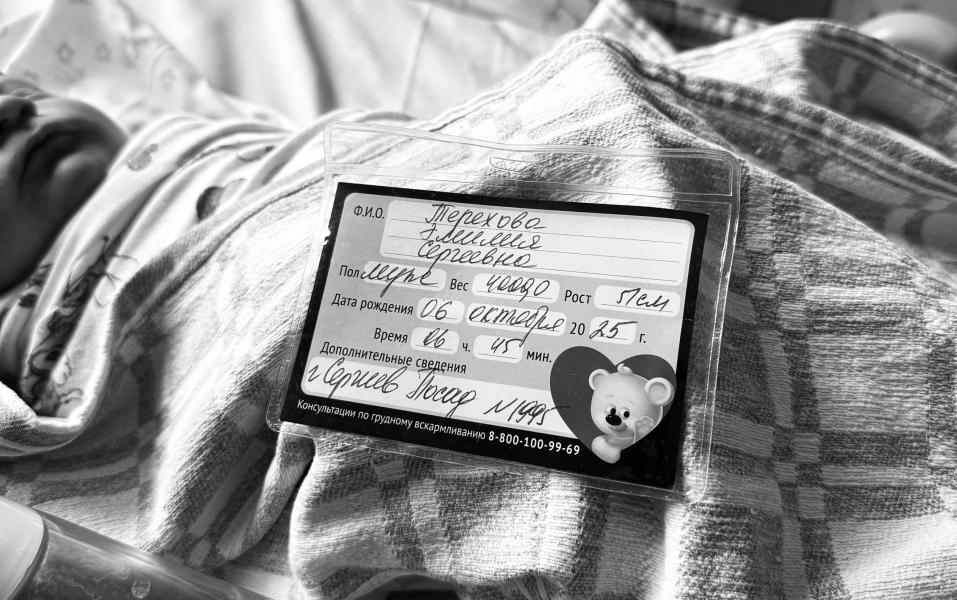 Ф.И.О. Терехова
Эмилия
Сергеевна
Пол муж Вес 4000,0 Рост 51см
Дата рождения 06 октября 20 25 г.
Время 06 ч. 45 мин.
Дополнительные сведения
г Сергиев Посад N1995
Консультации по грудному вскармливанию 8-800-100-99-69